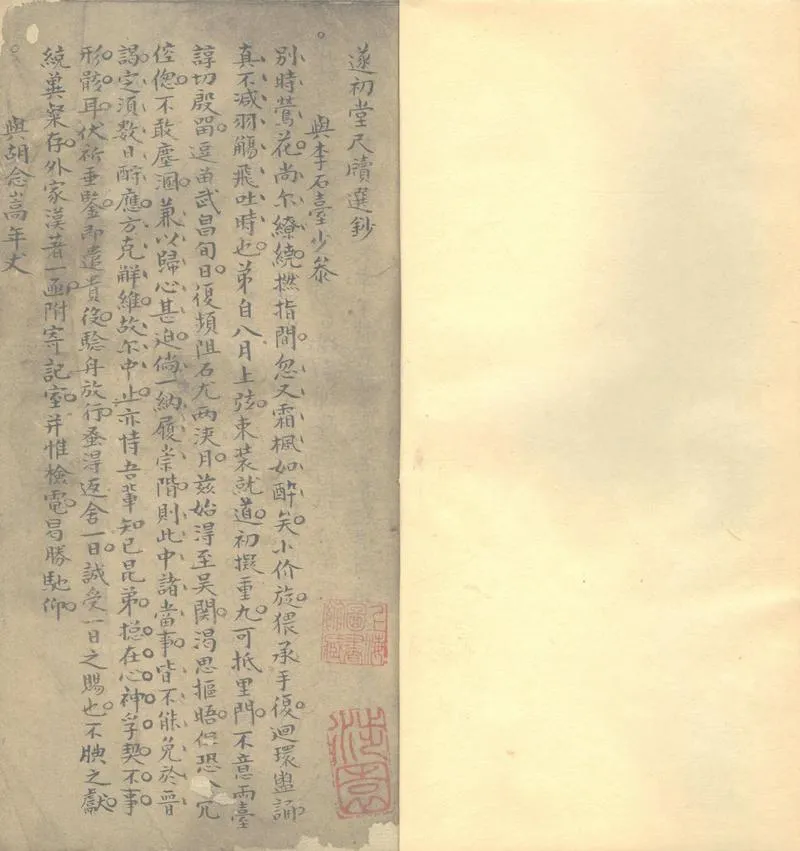 遂初堂尺牘選鈔
與李石臺少叅
別時鶯花尚尔繚繞撚指間忽又霜楓如醉矣小价旋猥承手復迴環盥誦
真不减羽觴飛吐時也弟自八月上弦束装就道初擬重九可抵里門不意兩臺
諄切殷留逗留武昌旬日復頻阻石尤兩浹月兹始得至吴関渴思摳晤但恐入冗
倥偬不敢塵溷兼以歸心甚迫倘一納履崇階則此中諸當事皆不能免於晋
謁定須数日酧應方克觧維故尔中止亦恃吾軰知已昆弟揔在心神孚契不事
形骸耳伏祈垂鍳即遣貴役騐舟放行蚤得返舍一日誠受一日之賜也不腆之獻
統兾粲存外家漢著一函附寄記室并惟檢電曷勝馳仰
與胡念嵩年丈
上海圖書館藏